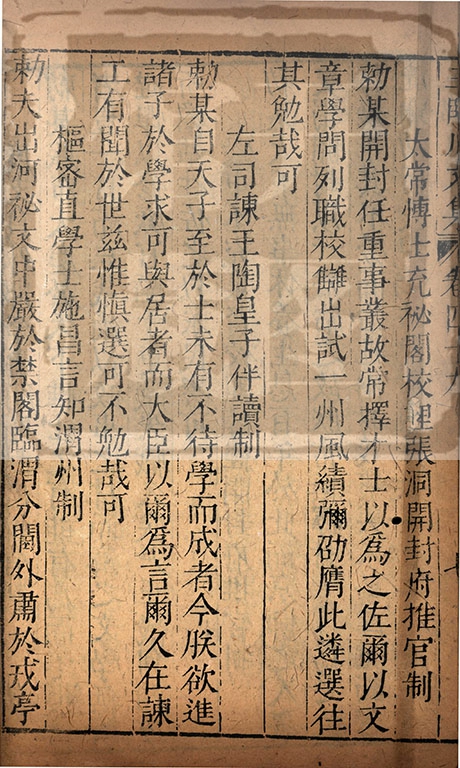 王臨川文集 卷四十九
太常博士充祕閣校理張洞開封府推官制
勑某開封任重事叢故常擇才士以為之佐爾以文
章學問列職校讎出試一州風績彌劭膺此遴選往
其勉哉可
左司諫王陶皇子伴讀制
勑某自天子至於士未有不待學而成者今朕欲進
諸子於學求可與居者而大臣以爾為言爾久在諫
工有聞於世兹惟慎選可不勉哉可
樞密直學士施昌言知渭州制
勑夫出河祕文中嚴於禁閣臨渭分閫外肅於戎亭